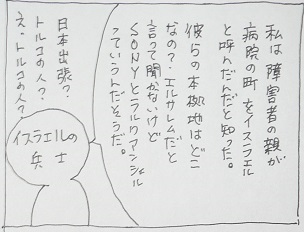 私は障害者の親が
病院の町をイスラエル
と呼んだんだと知った。
彼らの本拠地はどこ
なの？エルサレムだと
言って聞かないけど
SONYとラルクアンシェル
っていうんだそうだ。
日本出張？
トルコの人？
え、トルコの人？
イスラエルの
兵士